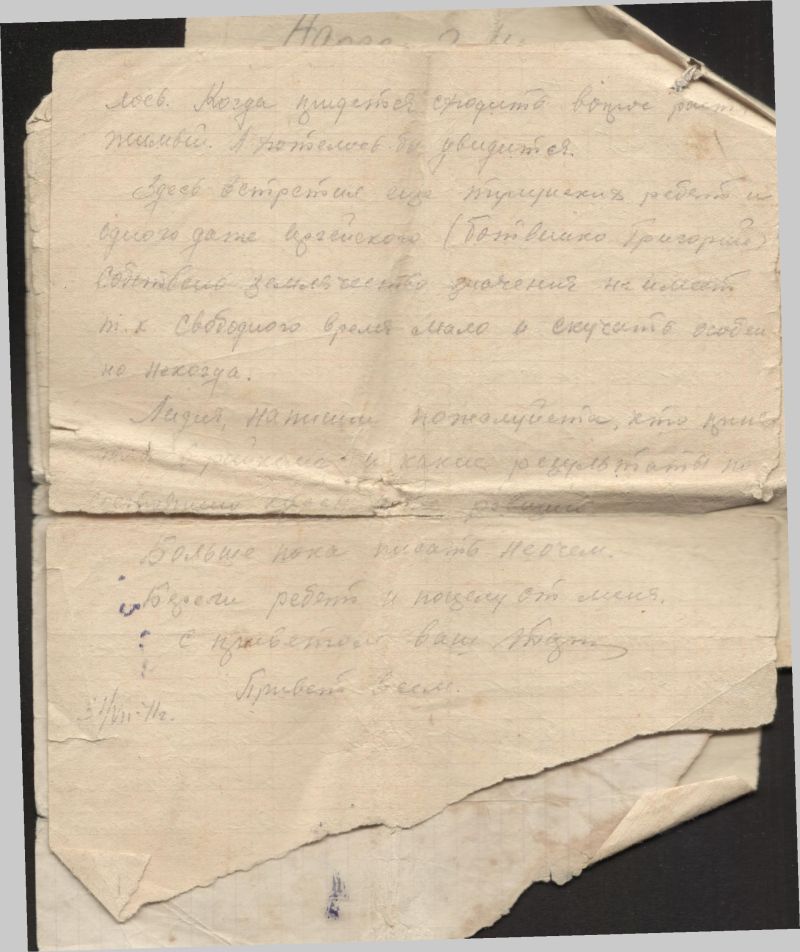 лось. Когда придется сходить вопрос раст
жимый. А хотелось бы увидится.
Здесь встретил еще тулунских ребят и
одного даже игейского (Ботвенко Григорий)
Собствено землячество значения не имеет
т.к. свободного время мало и скучать особен
но некогда.
Лидия, напиши пожалуйста, кто
и какие результаты по
Больше пока писать неочем.
Береги ребят и поцелуй от меня.
с приветом ваш
Привет всем.